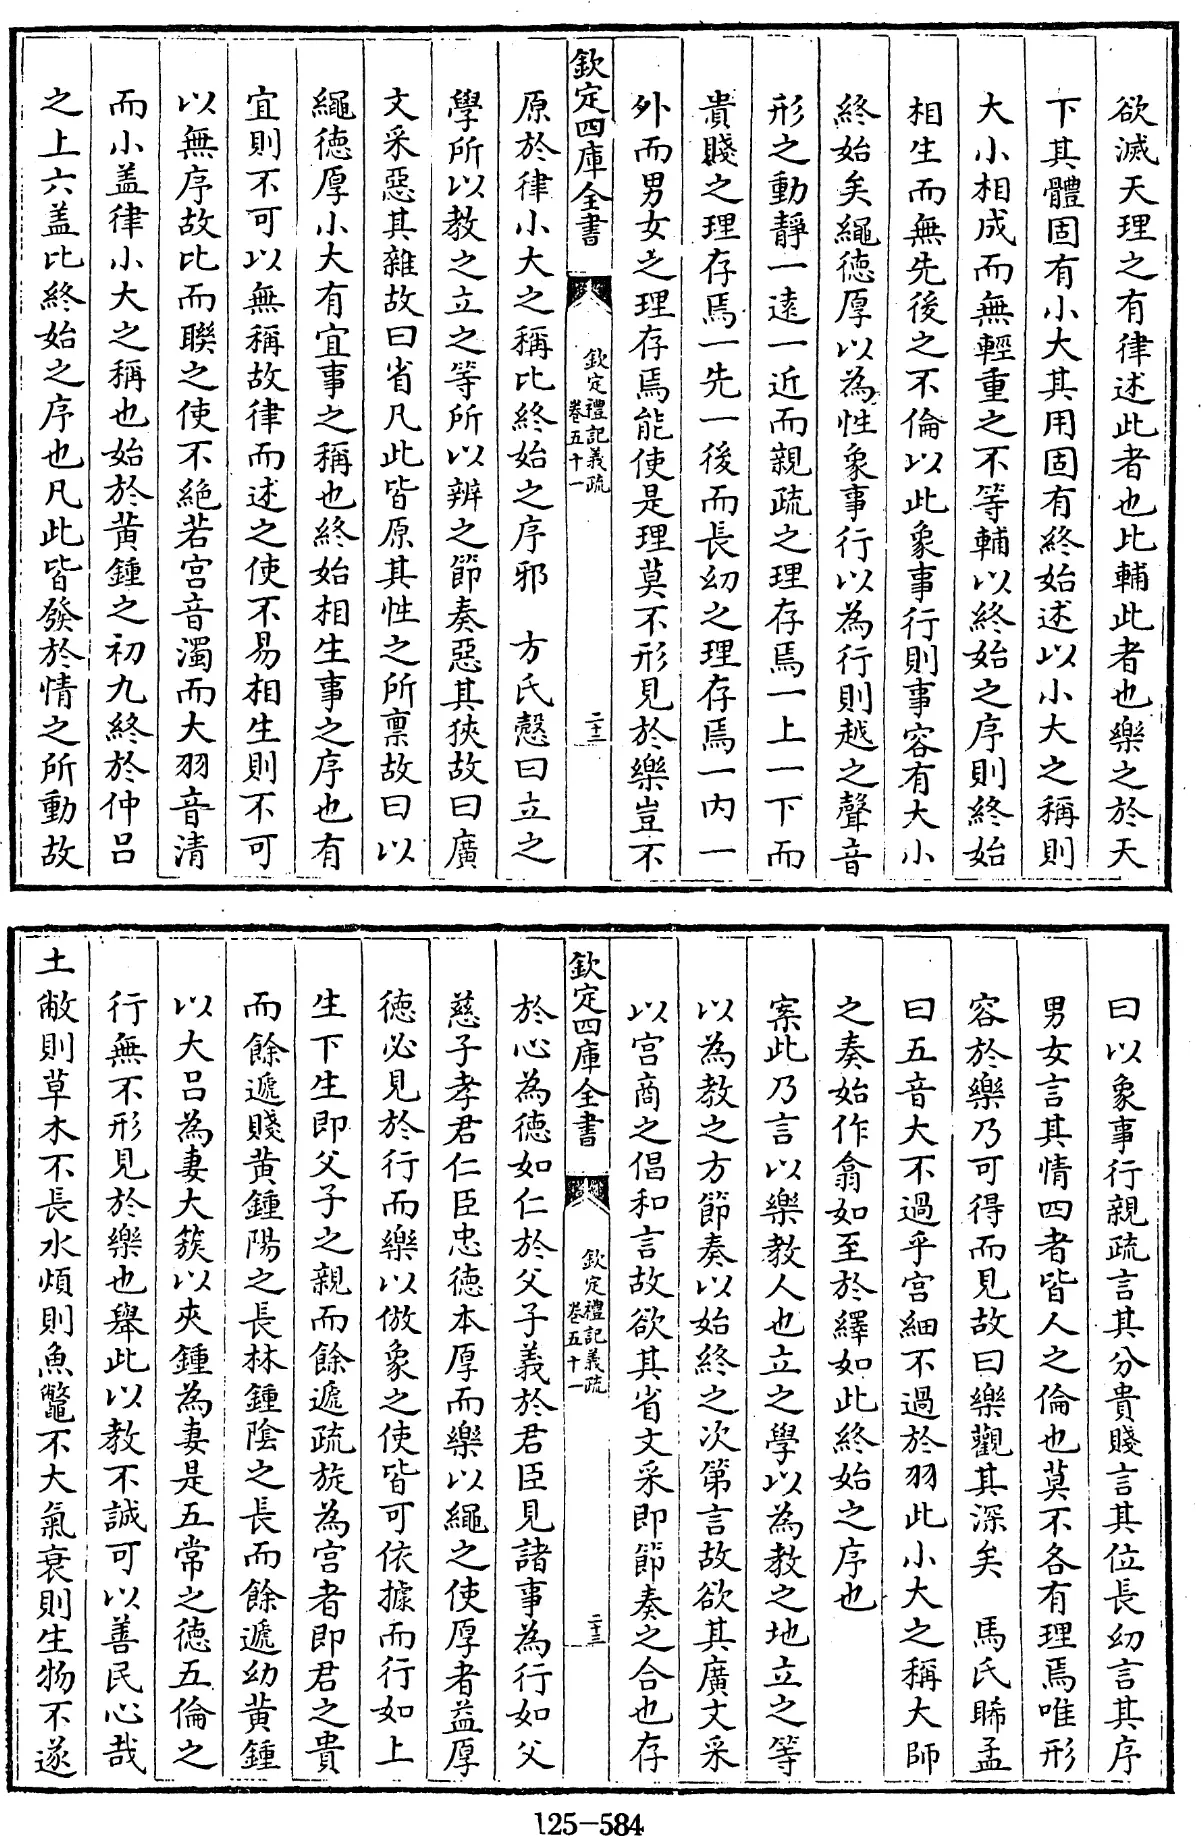 欲滅天理之有律述此者也比輔此者也樂之於天
下其體固有小大其用固有終始述以小大之稱則
大小相成而無輕重之不等輔以終始之序則終始
相生而無先後之不倫以此象事行則事容有大小
終始矣繩徳厚以為性象事行以為行則越之聲音
形之動靜一遠一近而親疏之理存焉一上一下而
貴賤之理存焉一先一後而長幼之理存焉一内一
外而男女之理存焉能使是理莫不形見於樂豈不
欽定四庫全書
欽定禮記義疏
卷五十一
二十三
原於律小大之稱比終始之序邪　方氏慤曰立之
學所以教之立之等所以辨之節奏惡其狹故曰廣
文采惡其雜故曰省凡此皆原其性之所禀故曰以
繩徳厚小大有宜事之稱也終始相生事之序也有
宜則不可以無稱故律而述之使不易相生則不可
以無序故比而聨之使不絶若宫音濁而大羽音清
而小盖律小大之稱也始於黄鍾之初九終於仲吕
之上六盖比終始之序也凡此皆發於情之所動故
曰以象事行親疏言其分貴賤言其位長幼言其序
男女言其情四者皆人之倫也莫不各有理焉唯形
容於樂乃可得而見故曰樂觀其深矣　馬氏晞孟
曰五音大不過乎宫細不過於羽此小大之稱大師
之奏始作翕如至於繹如此終始之序也
案此乃言以樂教人也立之學以為教之地立之等
以為教之方節奏以始終之次第言故欲其廣文采
以宫商之倡和言故欲其省文采即節奏之合也存
欽定四庫全書
欽定禮記義疏
卷五十一
二十三
於心為徳如仁於父子義於君臣見諸事為行如父
慈子孝君仁臣忠徳本厚而樂以繩之使厚者益厚
徳必見於行而樂以倣象之使皆可依據而行如上
生下生即父子之親而餘遞疏旋為宫者即君之貴
而餘遞賤黄鍾陽之長林鍾隂之長而餘遞幼黄鍾
以大吕為妻大簇以夾鍾為妻是五常之徳五倫之
行無不形見於樂也舉此以教不誠可以善民心哉
土敝則草木不長水煩則魚鼈不大氣衰則生物不遂
125-584